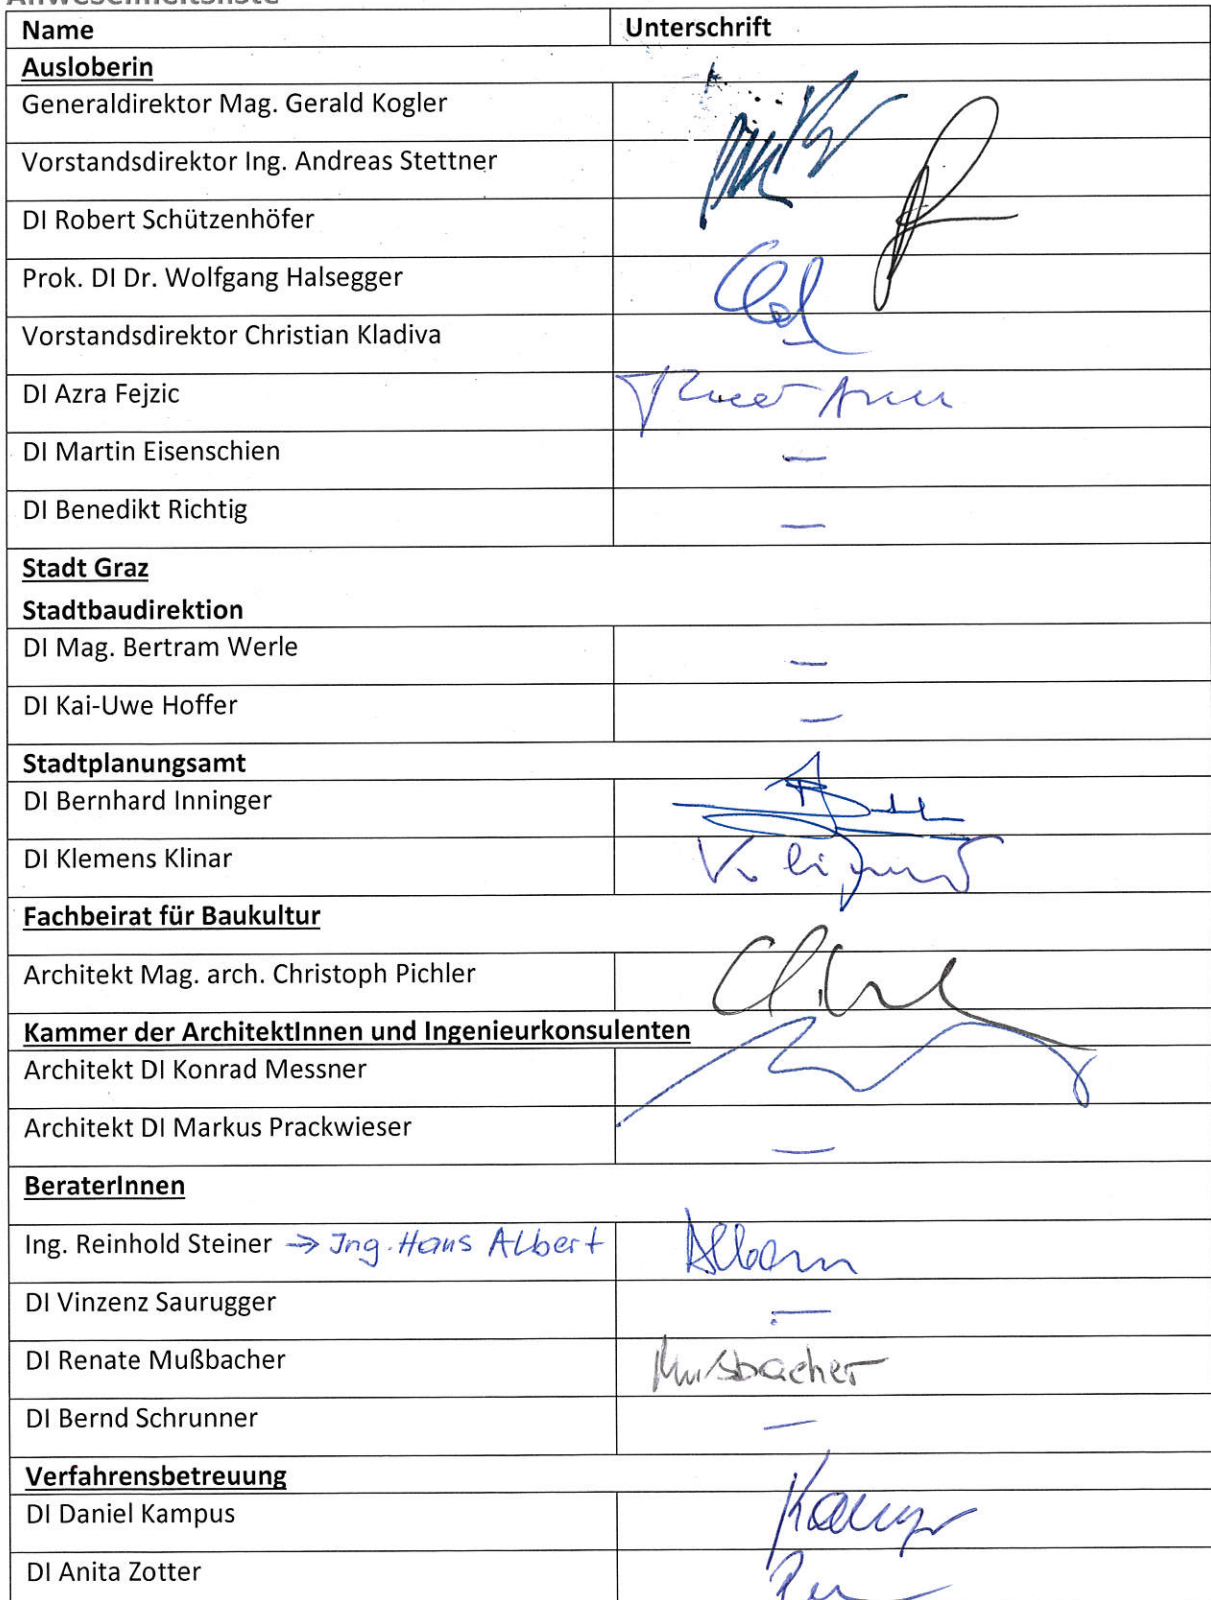 Anwesenheitsliste
Name Unterschrift
Ausloberin
Generaldirektor Mag. Gerald Kogler
Vorstandsdirektor Ing. Andreas Stettner
DI Robert Schützenhöfer
Prok. DI Dr. Wolfgang Halsegger
Vorstandsdirektor Christian Kladiva
DI Azra Fejzic
DI Martin Eisenschien —
DI Benedikt Richtig —
Stadt Graz
Stadtbaudirektion
DI Mag. Bertram Werle —
DI Kai-Uwe Hoffer —
Stadtplanungsamt
DI Bernhard Inninger
DI Klemens Klinar
Fachbeirat für Baukultur
Architekt Mag. arch. Christoph Pichler
Kammer der ArchitektInnen und Ingenieurkonsulenten
Architekt DI Konrad Messner
Architekt DI Markus Prackwieser —
BeraterInnen
Ing. Reinhold Steiner → Ing. Hans Albert
DI Vinzenz Saurugger —
DI Renate Mußbacher Mußbacher
DI Bernd Schrunner —
Verfahrensbetreuung
DI Daniel Kampus
DI Anita Zotter